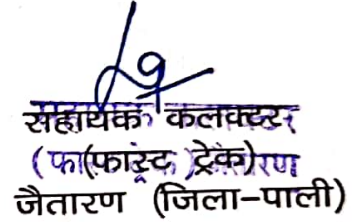 सहायक कलक्टर
(फास्ट ट्रेक)
जैतारण (जिला-पाली)